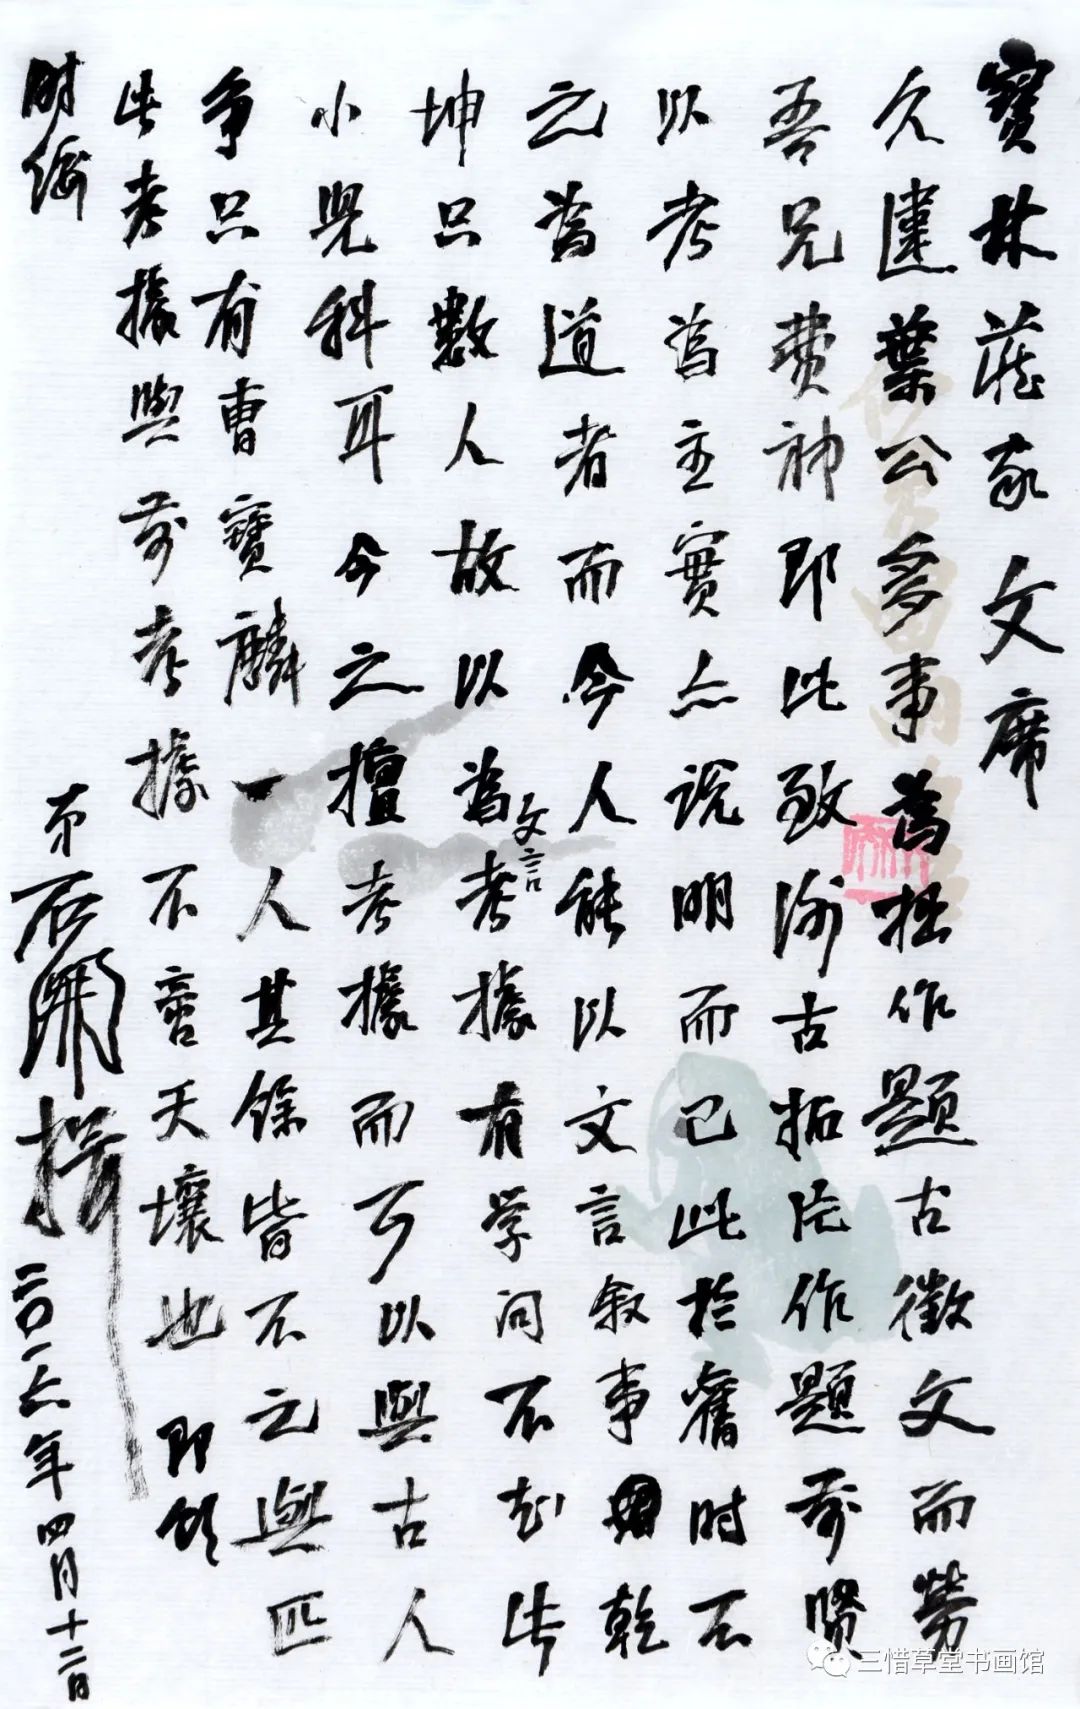 寶林藏家文席
久違葉公多事為拙作題古徵文而勞
吾兄费神即此致谢古拓片作題前贤
以考為主實亦说明而已此於舊时不
之為道者而今人能以文言叙事乾
坤只數人故以為文言考據有学问不知此
小兒科耳今之擅考據而可以與古人
争只有曹寶麟一人其餘皆不之與匹
此考據與前考據不啻天壤也即颂
时绥
弟石開拜
二〇一六年四月十二日
三惜草堂书画馆